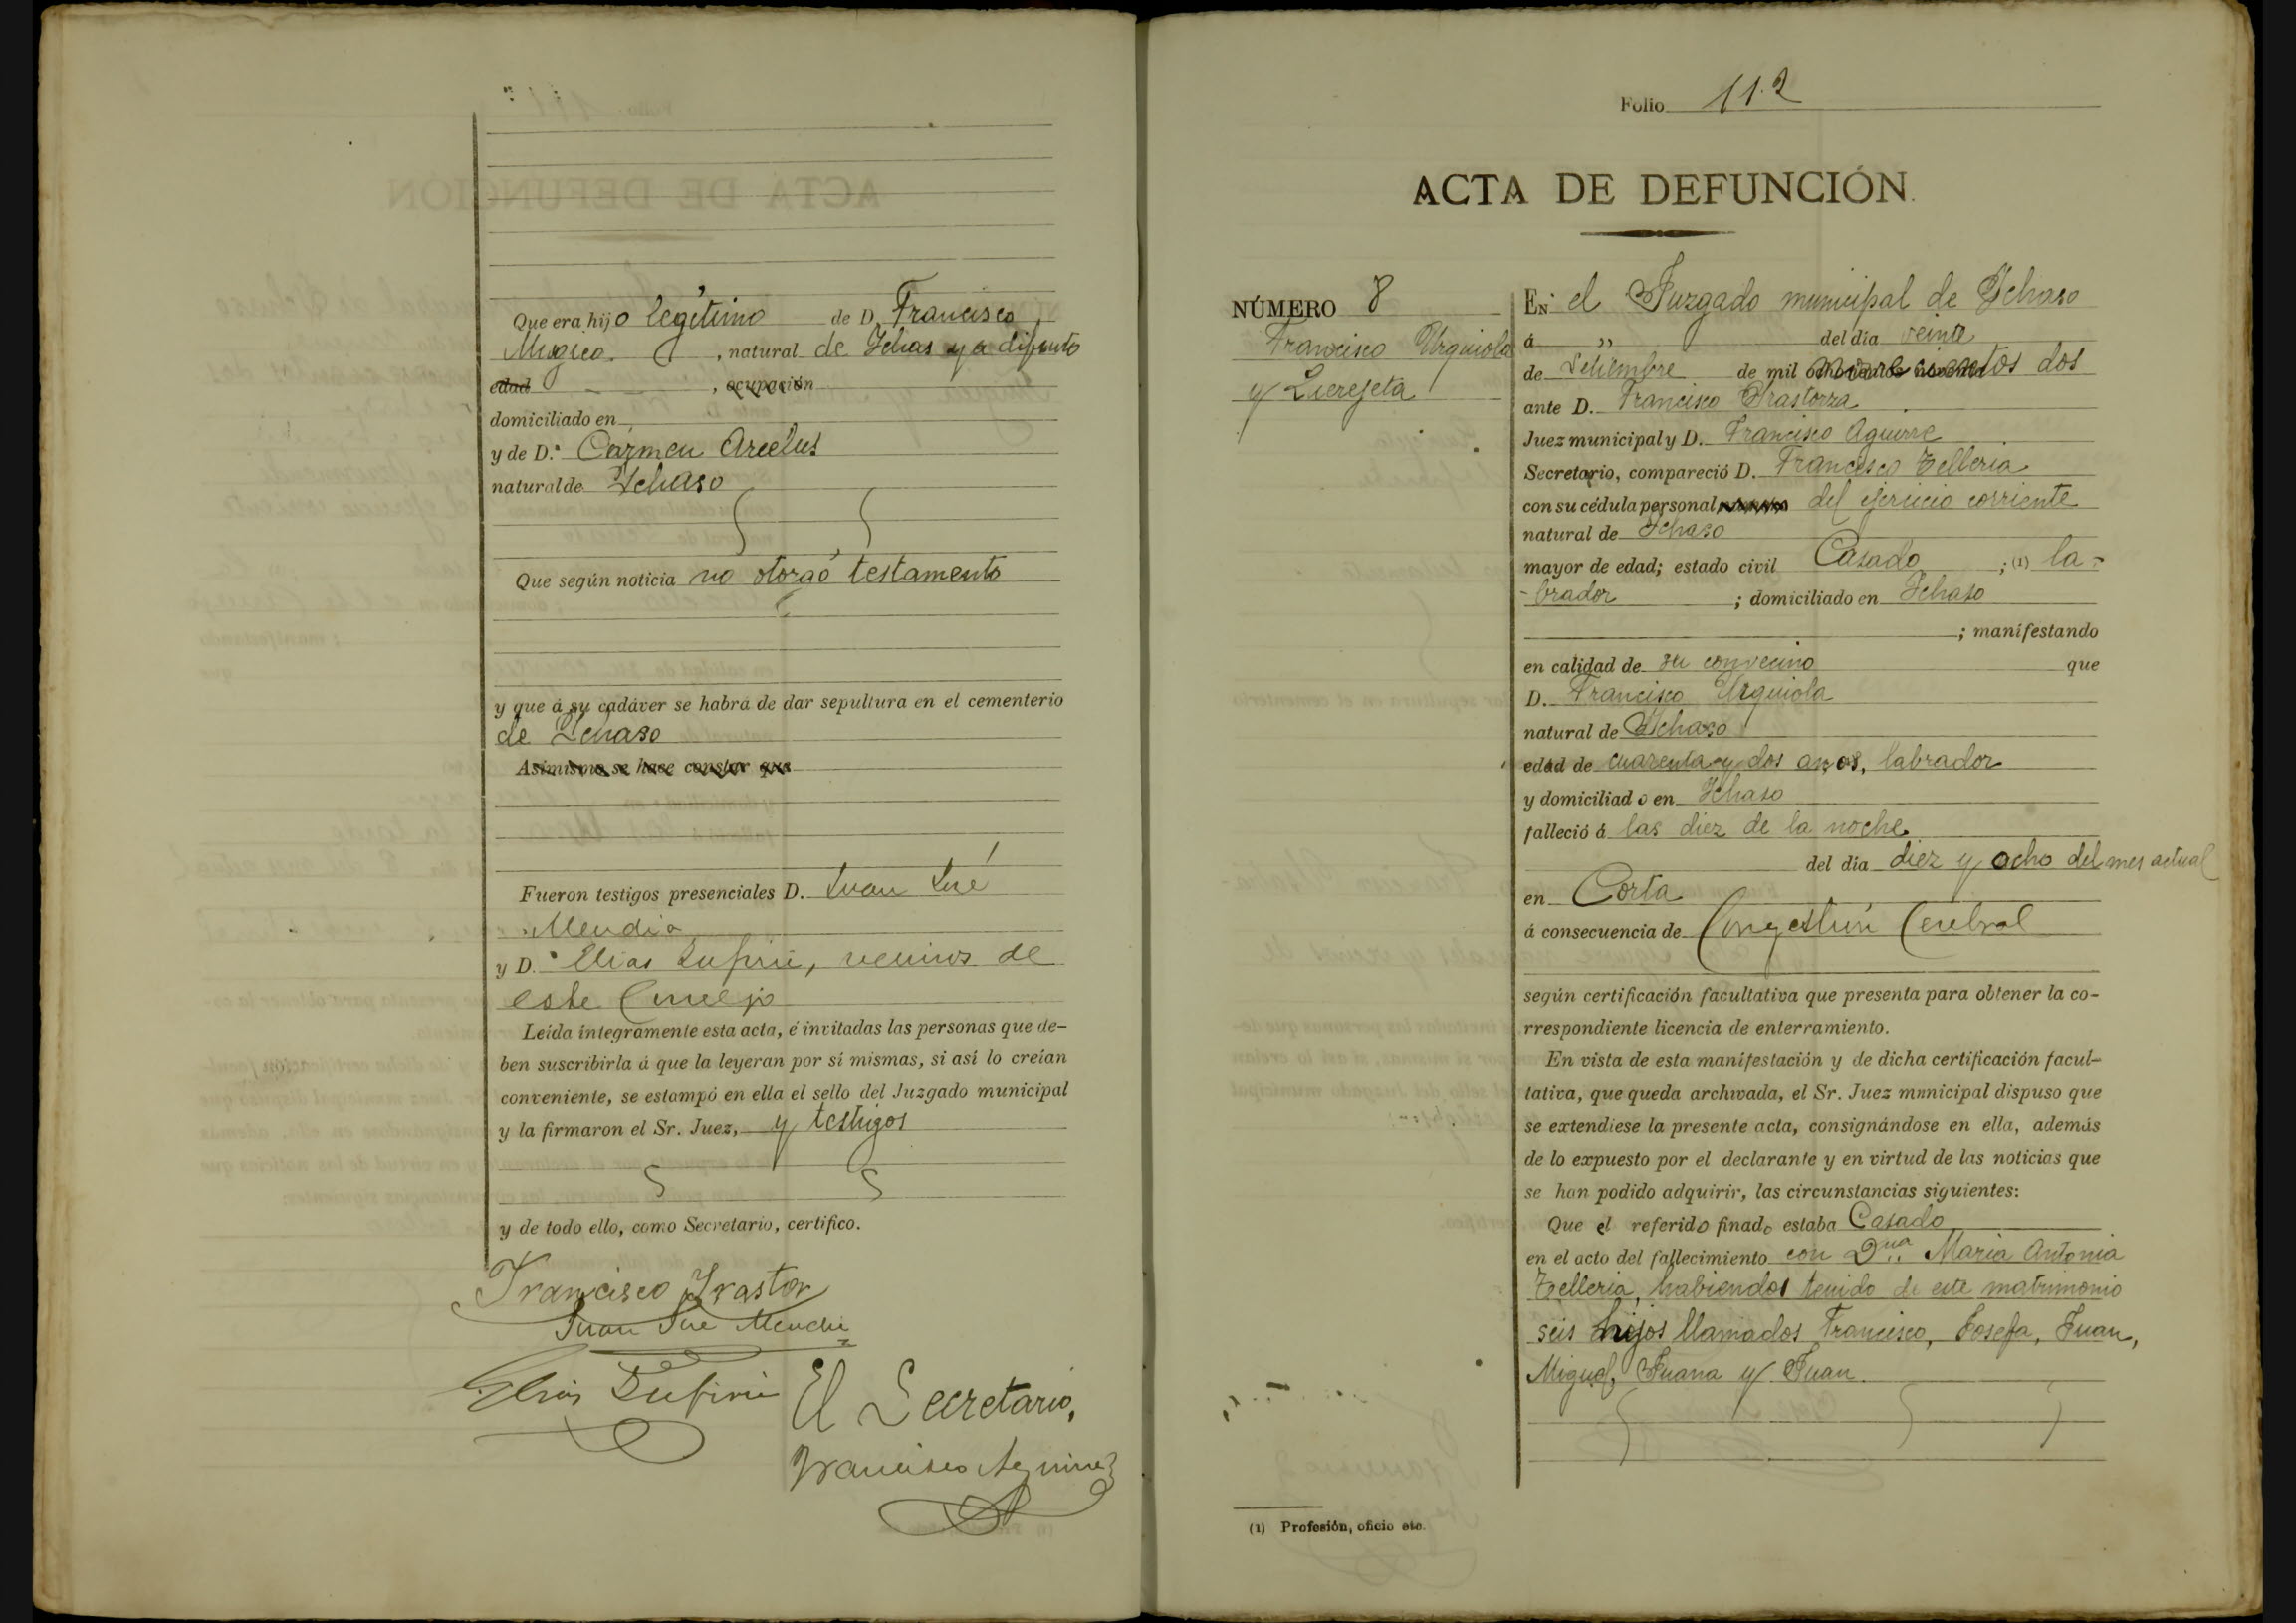 Que era hijo legítimo de D. Francisco
Mugica. , natural de Ichas ya difunto
edad , ocupación
domiciliado en
y de D.ª Carmen Arcelus
natural de Ichaso
Que según noticia no otorgó testamento
y que á su cadáver se habrá de dar sepultura en el cementerio
de Ichaso
Asimismo se hace constar que
Fueron testigos presenciales D. Juan José
Mendia
y D. Elias Lufiriu, vecinos de
este Concejo
Leída íntegramente esta acta, é invitadas las personas que de-
ben suscribirla á que la leyeran por sí mismas, si así lo creían
conveniente, se estampó en ella el sello del Juzgado municipal
y la firmaron el Sr. Juez, y testigos
y de todo ello, como Secretario, certifico.
Francisco Irastor
Juan José Mendia
Elias
El Secretario,
Francisco Aguirre
Folio 112
ACTA DE DEFUNCIÓN.
NÚMERO 8
Francisco Urquiola
y Licrejeta
EN el Juzgado municipal de Ychaso
á " del día veinte
de Setiembre de mil novecientos dos
ante D. Francisco Irastorza
Juez municipal y D. Francisco Aguirre
Secretario, compareció D. Francisco Telleria
con su cédula personal del ejercicio corriente
natural de Ichaso
mayor de edad; estado civil Casado ; (1) la-
-brador ; domiciliado en Ichaso
; manifestando
en calidad de su convecino que
D. Francisco Urquiola
natural de Ichaso
edad de cuarenta y dos años, labrador
y domiciliado en Ichaso
falleció á las diez de la noche
del día diez y ocho del mes actual
en Corta
á consecuencia de Congestión Cerebral
según certificación facultativa que presenta para obtener la co-
rrespondiente licencia de enterramiento.
En vista de esta manifestación y de dicha certificación facul-
tativa, que queda archivada, el Sr. Juez municipal dispuso que
se extendiese la presente acta, consignándose en ella, además
de lo expuesto por el declarante y en virtud de las noticias que
se han podido adquirir, las circunstancias siguientes:
Que el referido finado estaba Casado
en el acto del fallecimiento con Dña. Maria Antonia
Telleria, habiendos tenido de este matrimonio
seis hijos llamados Francisco, Josefa, Juan,
Miguel, Juana y Juan.
(1) Profesión, oficio etc.